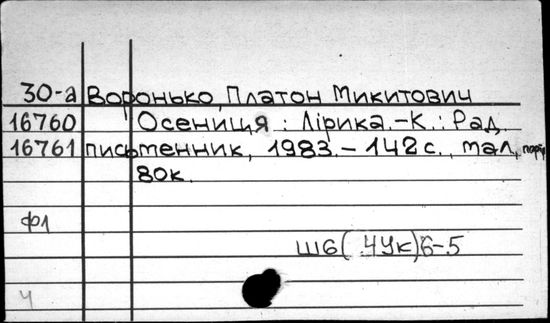 30-а Воронько, Платон Микитович
16760 Осениця : Лірика.-К.: Рад.
16761 письменник, 1983.-142с., мал., портр.
80к.
ФЛ
Ш6(4Ук)6-5
Ч